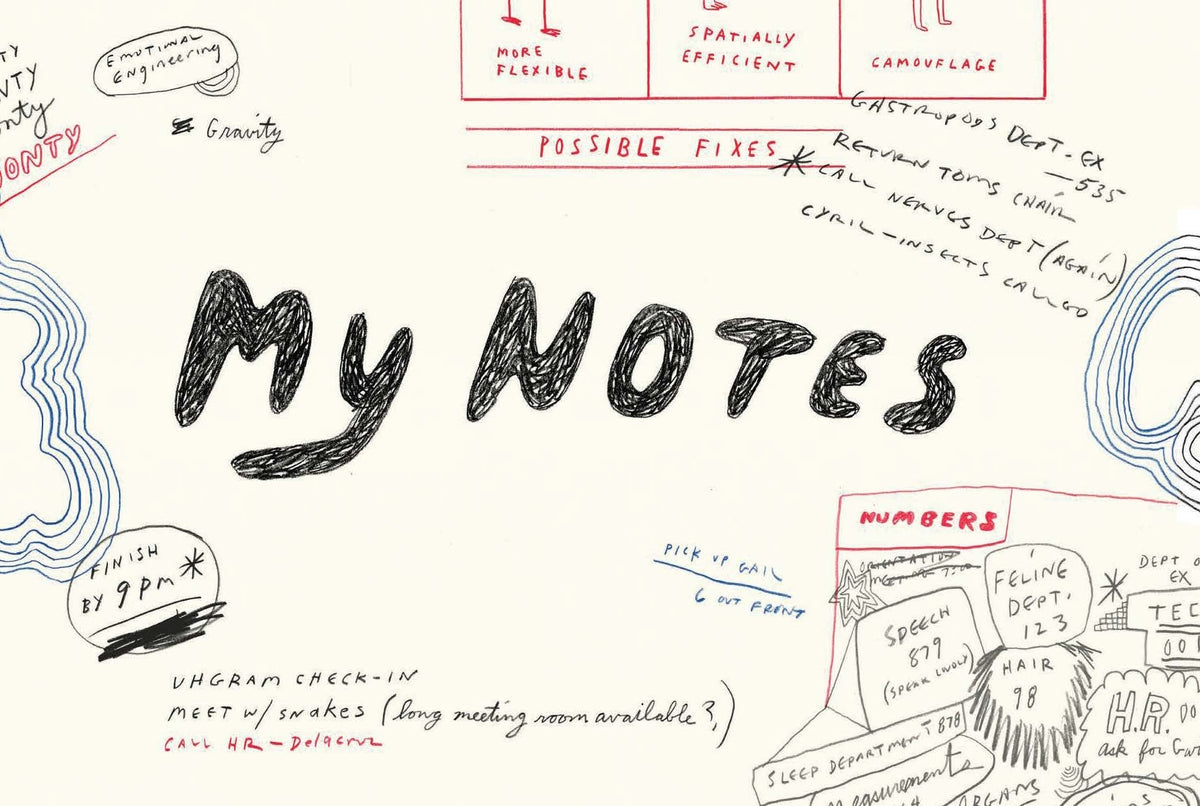 EMOTIONAL
Engineering
Gravity
MORE
FLEXIBLE
SPATIALLY
EFFICIENT
CAMOUFLAGE
POSSIBLE FIXES
GASTROPODS DEPT-EX
—535
RETURN TOMS CHAIR
* CALL NERVES DEPT (AGAIN)
CYRIL-INSECTS CALLGO
My NOTES
FINISH
BY 9pm *
PICK UP GAIL
6 OUT FRONT
NUMBERS
ORIENTATION
MEETING 7:00
SPEECH
879
(SPEAK LOUDLY)
FELINE
DEPT.
123
HAIR
98
DEPT
EX
TEC
001
H.R.
ask for
SLEEP DEPARTMENT 878
measurements
ORGANS
UHGRAM CHECK-IN
MEET W/ SNAKES (long meeting room available?,)
CALL HR - Delacruz